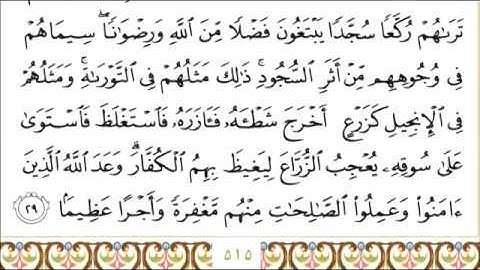 تَرَىٰهُمْ رُكَّعًا سُجَّدًا يَبْتَغُونَ فَضْلًا مِّنَ ٱللَّهِ وَرِضْوَٰنًا ۖ سِيمَاهُمْ
فِى وُجُوهِهِم مِّنْ أَثَرِ ٱلسُّجُودِ ۚ ذَٰلِكَ مَثَلُهُمْ فِى ٱلتَّوْرَىٰةِ ۚ وَمَثَلُهُمْ
فِى ٱلْإِنجِيلِ كَزَرْعٍ أَخْرَجَ شَطْـَٔهُۥ فَـَٔازَرَهُۥ فَٱسْتَغْلَظَ فَٱسْتَوَىٰ
عَلَىٰ سُوقِهِۦ يُعْجِبُ ٱلزُّرَّاعَ لِيَغِيظَ بِهِمُ ٱلْكُفَّارَ ۗ وَعَدَ ٱللَّهُ ٱلَّذِينَ
ءَامَنُوا۟ وَعَمِلُوا۟ ٱلصَّـٰلِحَـٰتِ مِنْهُم مَّغْفِرَةً وَأَجْرًا عَظِيمًۢا ٢٩
٥١٥